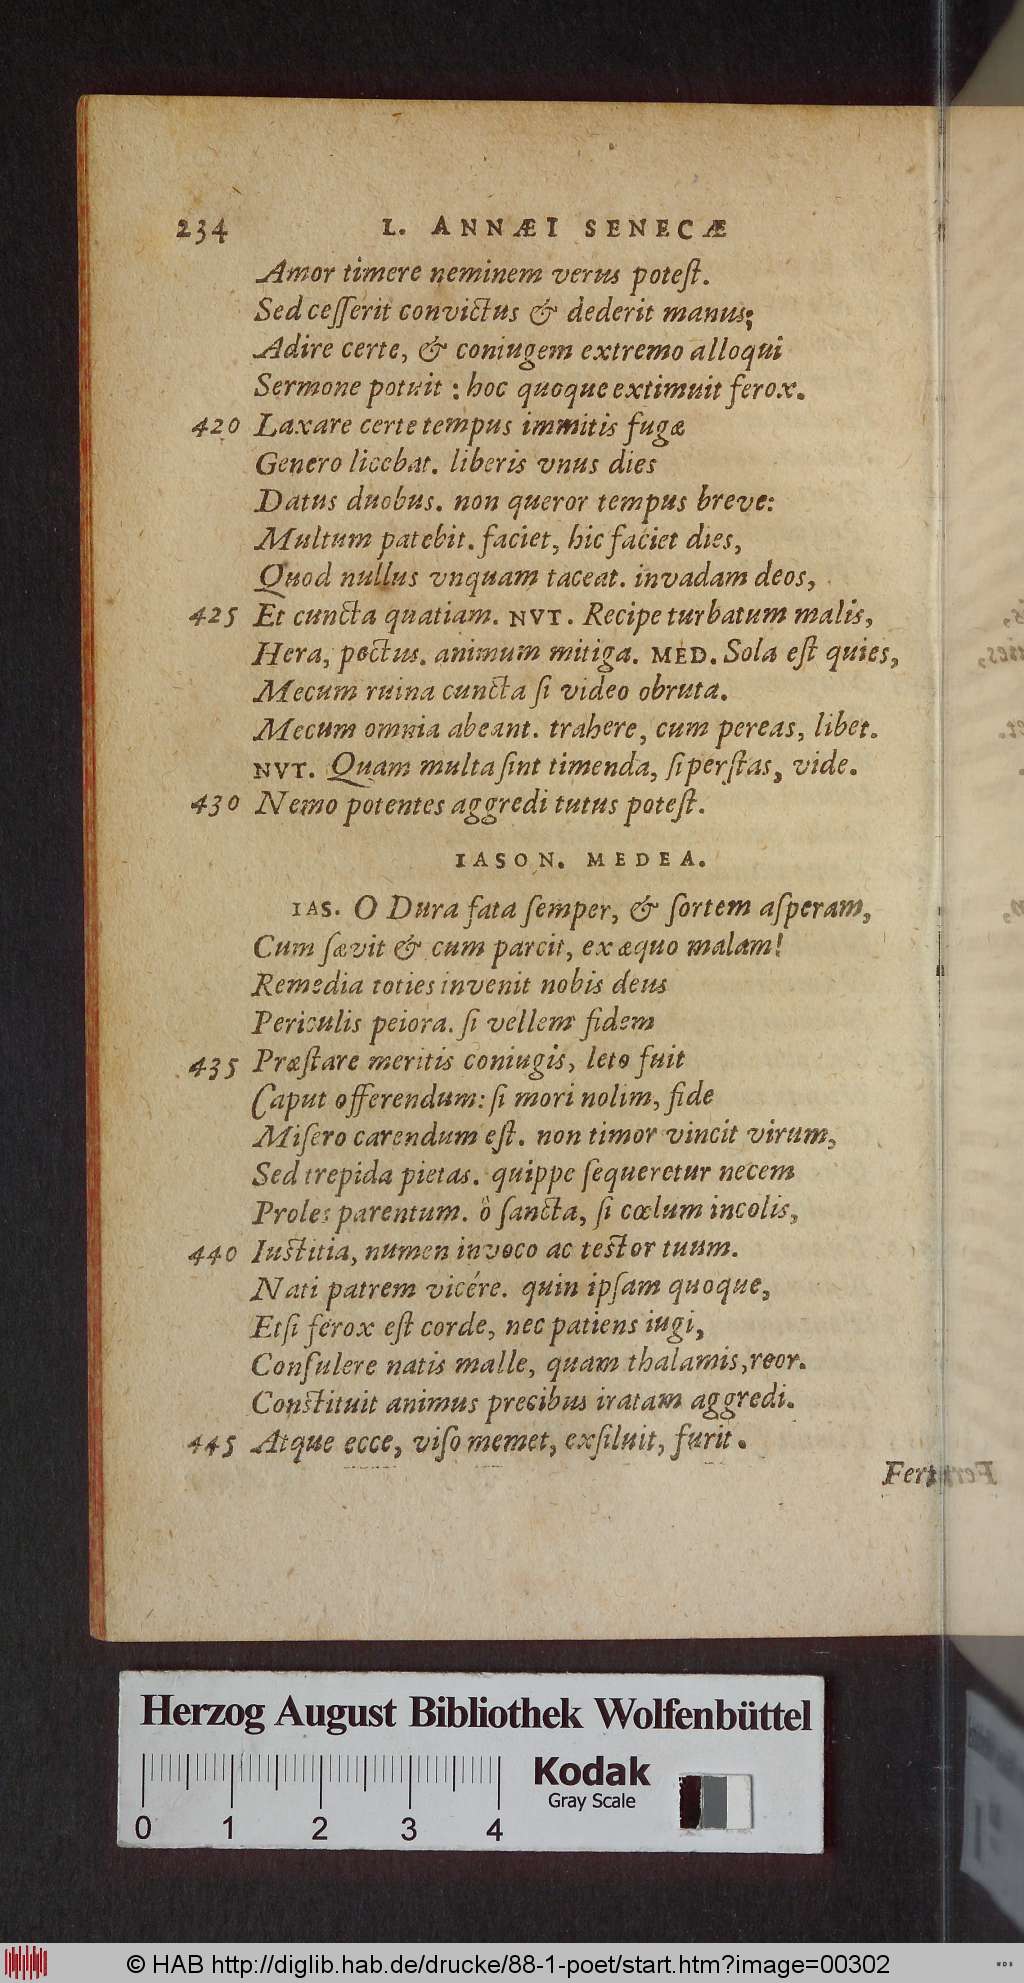 234 L. ANNÆI SENECÆ
Amor timere neminem verus poteſt.
Sed ceſſerit convictus & dederit manus;
Adire certe, & coniugem extremo alloqui
Sermone potuit : hoc quoque extimuit ferox.
420 Laxare certe tempus immitis fugæ
Genero licebat. liberis vnus dies
Datus duobus. non queror tempus breve:
Multum patebit. faciet, hic faciet dies,
Quod nullus vnquam taceat. invadam deos,
425 Et cuncta quatiam. NVT. Recipe turbatum malis,
Hera, pectus. animum mitiga. MED. Sola eſt quies,
Mecum ruina cuncta ſi video obruta.
Mecum omnia abeant. trahere, cum pereas, libet.
NVT. Quam multa ſint timenda, ſi perſtas, vide.
430 Nemo potentes aggredi tutus poteſt.
IASON. MEDEA.
IAS. O Dura fata ſemper, & ſortem aſperam,
Cum ſævit & cum parcit, ex æquo malam!
Remedia toties invenit nobis deus
Periculis peiora. ſi vellem fidem
435 Præſtare meritis coniugis, leto fuit
Caput offerendum: ſi mori nolim, fide
Miſero carendum eſt. non timor vincit virum,
Sed trepida pietas. quippe ſequeretur necem
Proles parentum. ô ſancta, ſi cœlum incolis,
440 Iuſtitia, numen invoco ac teſtor tuum.
Nati patrem vicére. quin ipſam quoque,
Etſi ferox eſt corde, nec patiens iugi,
Conſulere natis malle, quam thalamis, reor.
Conſtituit animus precibus iratam aggredi.
445 Atque ecce, viſo memet, exſiluit, furit.
Fert
Herzog August Bibliothek Wolfenbüttel
Kodak
Gray Scale
0 1 2 3 4
© HAB http://diglib.hab.de/drucke/88-1-poet/start.htm?image=00302